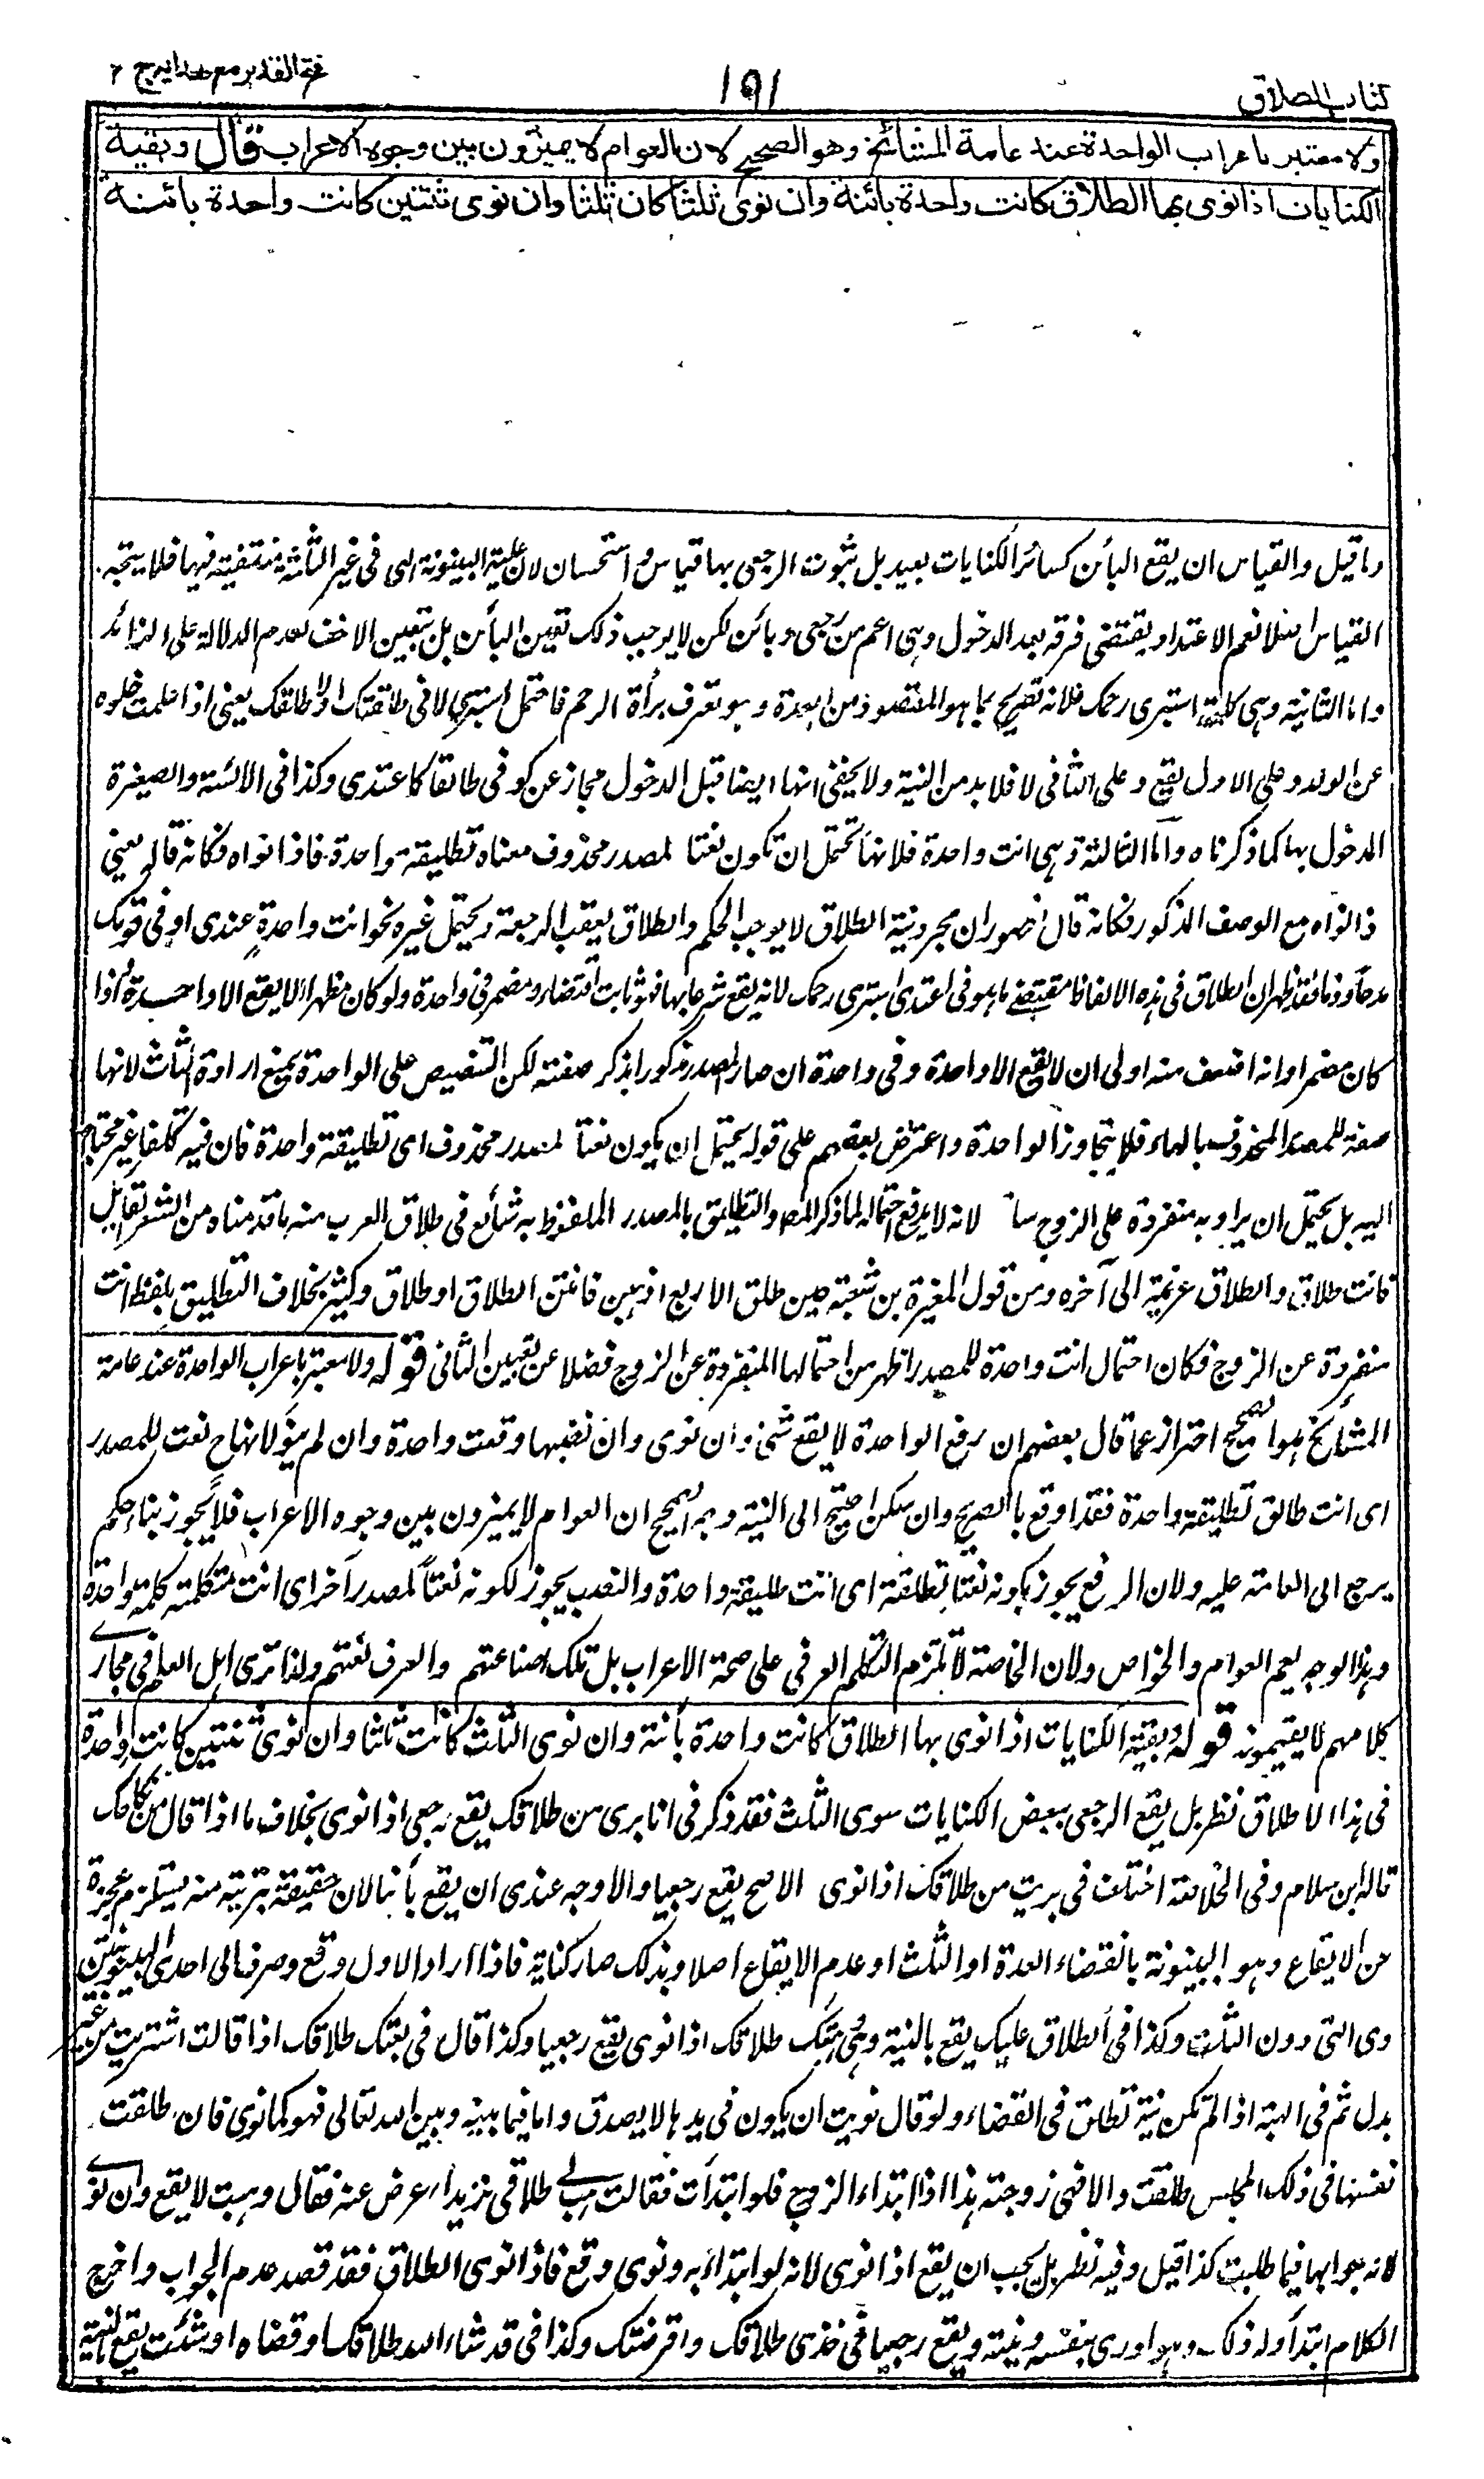 كتاب الطلاق
١٩١
فتح القدير مع هدايه ج ٢
ولا معتبر باعراب الواحدة عند عامة المشائخ وهو الصحيح لان العوام لا يميزون بين وجوه الاعراب قال وبقية
الكنايات اذا نوى بها الطلاق كانت واحدة بائنة وان نوى ثلثا كان ثلثا وان نوى ثنتين كانت واحدة بائنة
وما قيل والقياس ان يقع البائن كسائر الكنايات بعيد بل ثبوت الرجعى بها قياس و استحسان لان علية البينونة الى فى غير الثلثة منتفية فيها فلا يتجه
القياس اصلا نعم الاعتداد يقتضى فرقة بعد الدخول وهى اعم من رجعى وبائن لكن لا يوجب ذلك تعين البائن بل تعين الاخف لعدم الدلالة على الزائد
واما الثانية وهى كلمة استبرى رحمك فلانه تصريح بما هو المقصود من العدة وهو تعرف برأة الرحم فاحتمل استبرى لانى طلقتك او لاطلقك يعنى اذا علمت خلوه
عن الولد وعلى الاول يقع وعلى الثانى لا فلا بد من النية ولا يخفى انها ايضا قبل الدخول مجاز عن كونى طالقا كاعتدى وكذا فى الائسة والصغيرة
المدخول بها كما ذكرناه واما الثالثة وهى انت واحدة فلانها تحتمل ان تكون نعتا لمصدر محذوف معناه تطليقة واحدة فاذا نواه فكانه قاله يعنى
اذا نواه مع الوصف المذكور فكانه قال لظهور ان مجرد نية الطلاق لا يوجب الحكم والطلاق يعقب الرجعة ويحتمل غيره نحو انت واحدة عندى او فى قومك
مدحا وذما فقد ظهر ان الطلاق فى هذه الالفاظ مقتضى ما هو فى اعتدى استبرى رحمك لانه يقع شرعا بها فهو ثابت اقتضاء ومضمر فى واحدة ولو كان مظهرا لا يقع الا واحدة فاذا
كان مضمرا وانه اضعف منه اولى ان لا يقع الا واحدة وفى واحدة ان صار المصدر مذكورا بذكر صفته لكن التنصيص على الواحدة يمنع ارادة الثلث لانها
صفة للمصدر المحذوف بالهاء فلا يتجاوز الواحدة واعترض بعضهم على قوله يحتمل ان يكون نعتا لمصدر محذوف اى تطليقة واحدة فان فيه تكلفا غير محتاج
اليه بل يحتمل ان يراد به منفردة على الزوج لانه لا يدفع احتماله لما ذكر المصنف والتطليق بالمصدر الملفوظ به شائع فى طلاق العرب منه ما قدمناه من الشعر لقائل
فانت طلاق والطلاق عزيمة الى آخره ومن قول المغيرة بن شعبة حين طلق الاربع اذهبن فانتن الطلاق او طلاق وكثير بخلاف التطليق بلفظ انت
منفردة عن الزوج فكان احتمال انت واحدة للمصدر اظهر من احتمالها المنفردة عن الزوج فضلا عن تعيين الثانى قوله ولا معتبر باعراب الواحدة عند عامة
المشائخ هو الصحيح احتراز عما قال بعضهم ان رفع الواحدة لا يقع شئ وان نوى وان نصبها وقعت واحدة وان لم ينو لانها ح نعت للمصدر
اى انت طالق تطليقة واحدة فقد اوقع بالصريح وان سكن احتيج الى النية وجه الصحيح ان العوام لا يميزون بين وجوه الاعراب فلا يجوز بناء حكم
يرجع الى العامة عليه ولان الرفع يجوز لكونه نعتا لتطليقة اى انت طليقة واحدة والنصب يجوز لكونه نعتا لمصدر آخر اى انت متكلمة كلمة واحدة
وهذا الوجه يعم العوام والخواص ولان الخاصة لا تلتزم التكلم العرفى على صحة الاعراب بل تلك صناعتهم والعرف لغتهم ولذا ترى اهل العلم فى مجارى
كلامهم لا يقيمونه قوله وبقية الكنايات اذا نوى بها الطلاق كانت واحدة بائنة وان نوى الثلث كانت ثلثا وان نوى ثنتين كانت واحدة
فى هذا الاطلاق نظر بل يقع الرجعى ببعض الكنايات سوى الثلث فقد ذكر فى انا برى من طلاقك يقع رجعى اذا نوى بخلاف ما اذا قال من نكاحك
قاله ابن سلام وفى الخلاصة اختلف فى برئت من طلاقك اذا نوى الاصح يقع رجعيا والاوجه عندى ان يقع بائنا لان حقيقة تبرئته منه يستلزم عجزه
عن الايقاع وهو البينونة بانقضاء العدة او الثلث او عدم الايقاع اصلا وبذلك صار كناية فاذا اراد الاول وقع وصرف الى احدى البينونتين
وهى التى دون الثلث وكذا فى الطلاق عليك يقع بالنية وفى وهبتك طلاقك اذا نوى يقع رجعيا وكذا قال فى بعتك طلاقك اذا قالت اشتريت من غير
بدل ثم فى الهبة اذا لم تكن نية تطلق فى القضاء ولو قال نويت ان يكون فى يدها لا يصدق واما فيما بينه وبين الله تعالى فهو كما نوى فان طلقت
نفسها فى ذلك المجلس طلقت والا فهى زوجته هذا اذا ابتداء الزوج فلو ابتدأت فقالت هب لى طلاقى تريد اعرض عنه فقال وهبت لا يقع وان نوى
لانه جوابها فيما طلبت كذا قيل وفيه نظر بل يجب ان يقع اذا نوى لانه لو ابتداء به ونوى وقع فاذا نوى الطلاق فقد قصد عدم الجواب واخرج
الكلام ابتداء وله ذلك وهو ادرى بنفسه ونيته ويقع رجعيا فى خذى طلاقك واقرضتك وكذا فى قد شاء الله طلاقك او قضاه او شئت يقع بالنية